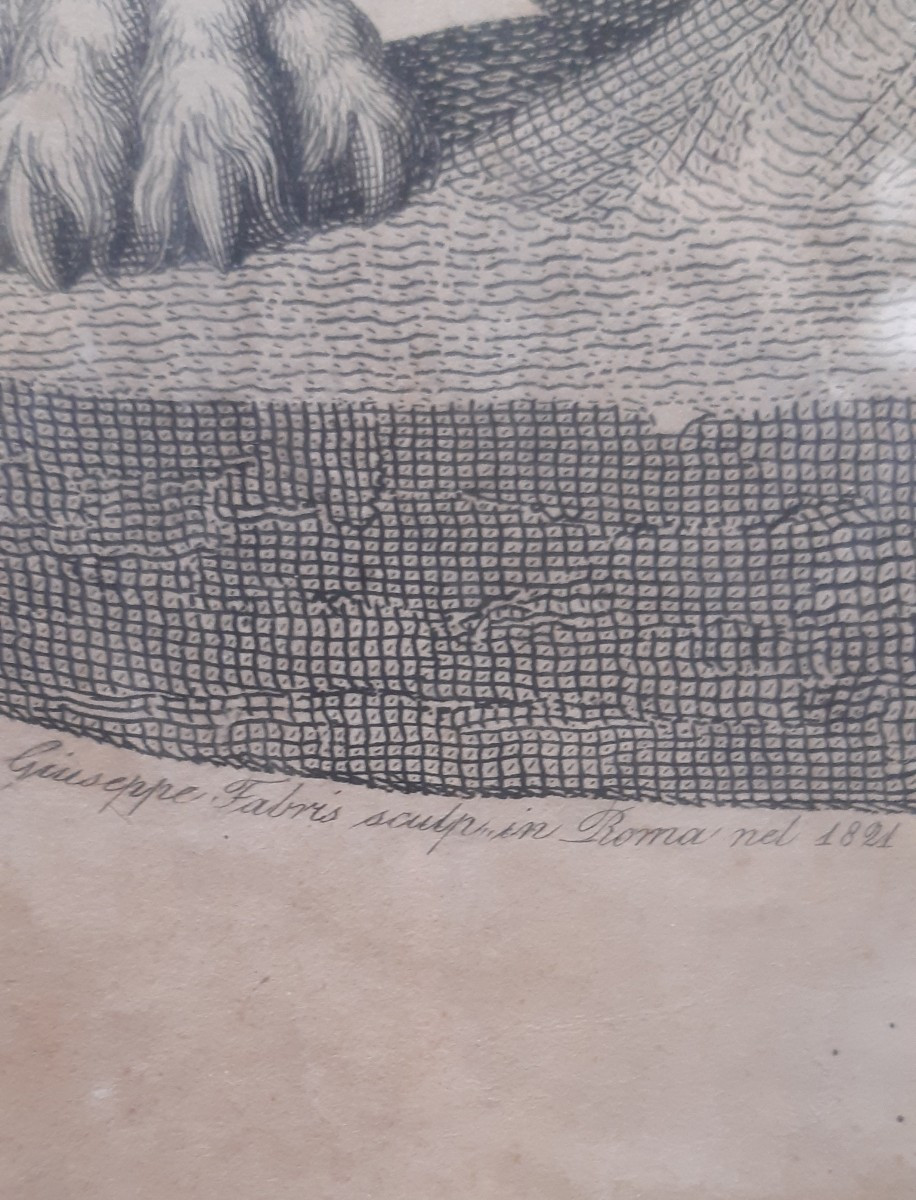 Giuseppe Fabris sculp. in Roma nel 1821